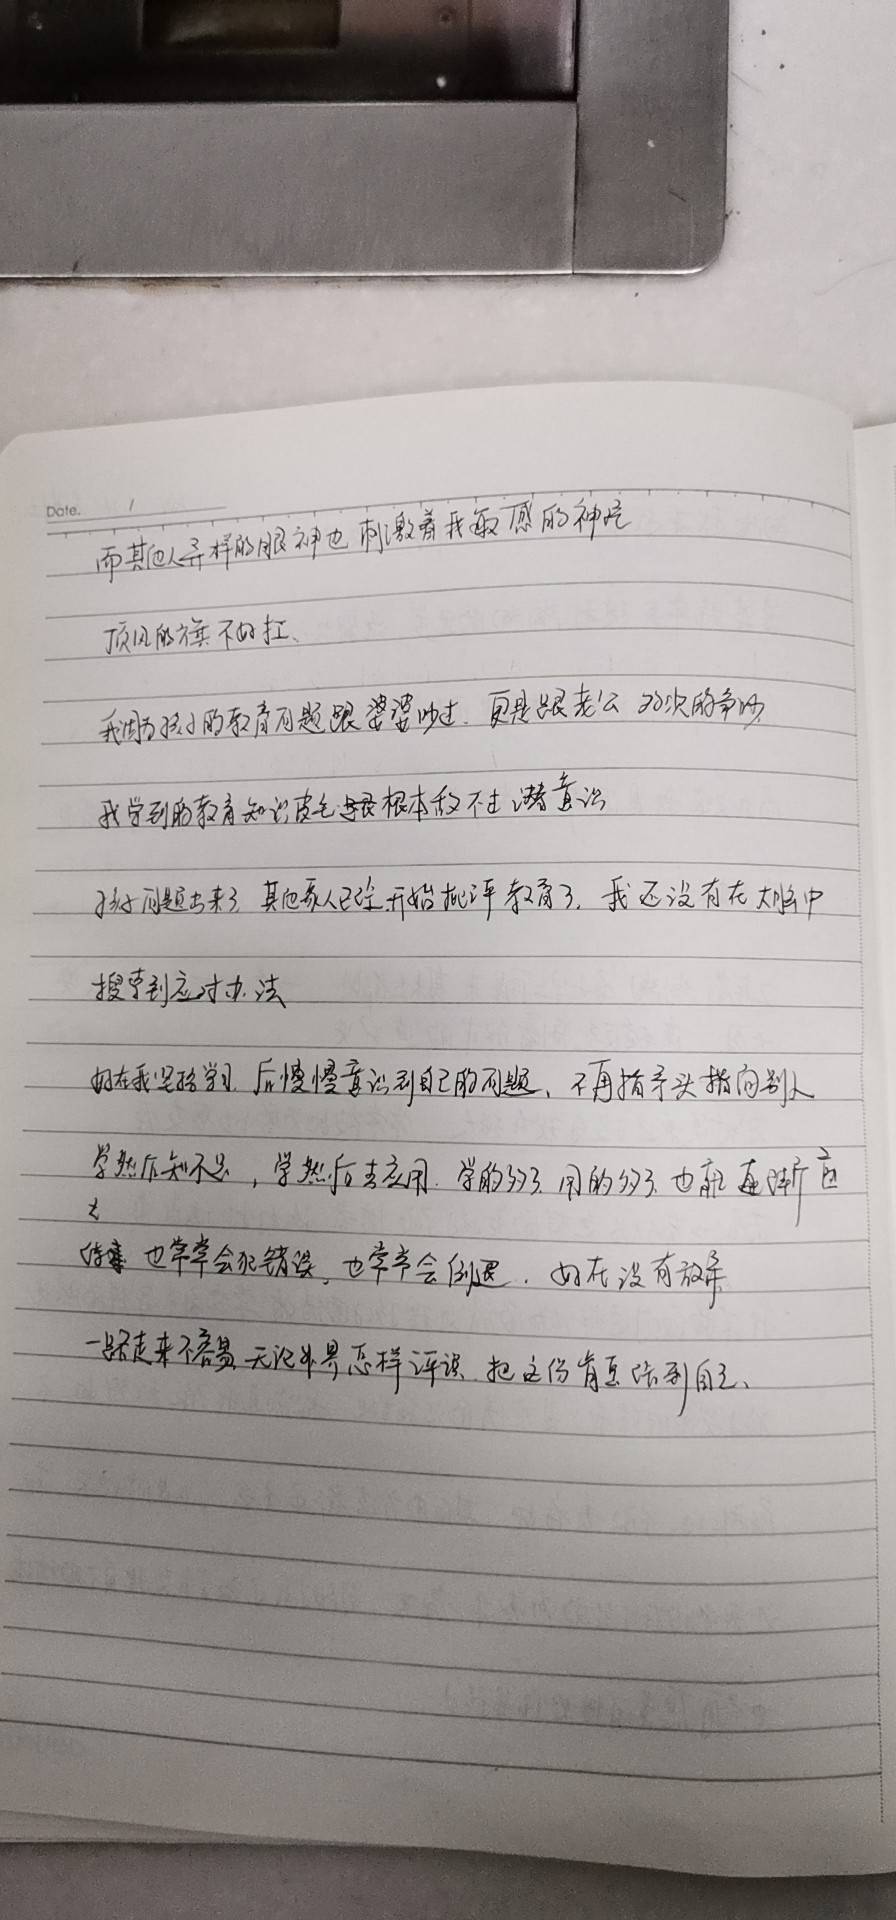 Date. /
而其他人异样的眼神也刺激着我敏感的神经
顶风的旗不好扛、
我因为孩子的教育问题跟婆婆吵过. 更是跟老公 的争吵
我学到的教育知识皮毛 根本敌不过潜意识
孩子问题出来了 其他家人已经开始批评教育了. 我还没有在大脑中
搜索到应对办法
好在我坚持学习 后慢慢意识到自己的问题、不再指矛头指向别人
学然后知不足，学然后去应用. 学的多了 用的多了 也能
也常常会犯错误，也常常会倒退. 好在没有放弃
一路走来不容易 无论外界怎样评误 把这份肯定 到自己、